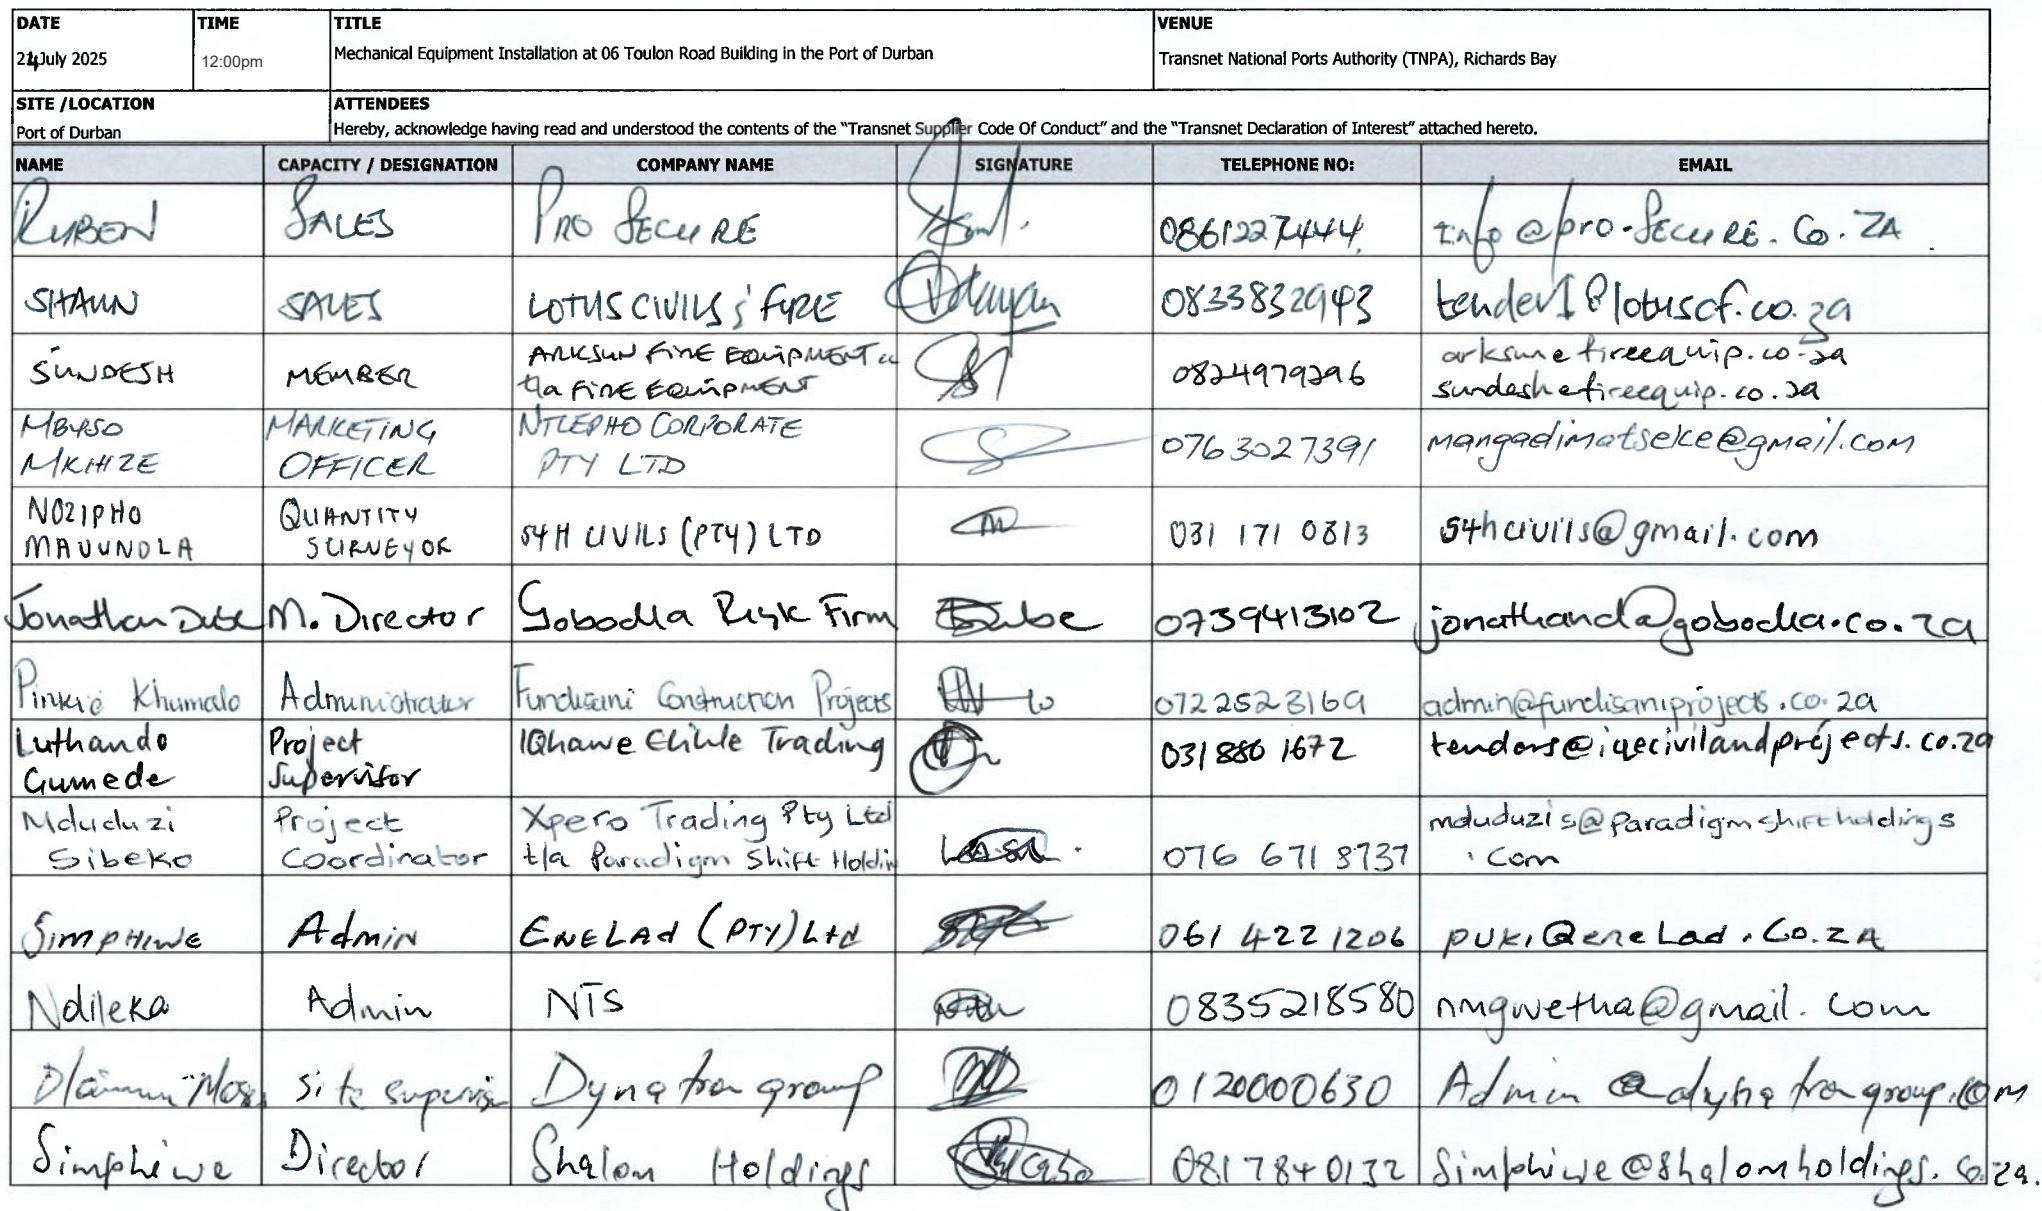 DATE TIME TITLE VENUE
24 July 2025 12:00pm Mechanical Equipment Installation at 06 Toulon Road Building in the Port of Durban Transnet National Ports Authority (TNPA), Richards Bay
SITE /LOCATION ATTENDEES
Port of Durban Hereby, acknowledge having read and understood the contents of the "Transnet Supplier Code Of Conduct" and the "Transnet Declaration of Interest" attached hereto.
NAME CAPACITY / DESIGNATION COMPANY NAME SIGNATURE TELEPHONE NO: EMAIL
RUBEN SALES PRO SECURE 0861227444 Info@pro-Secure.Co.ZA
SHAUN SALES LOTUS CIVILS & FYRE 0833832943 tender1@lotuscf.co.za
SUNDESH MEMBER ARKSUN FIRE EQUIPMENT cc 0824979296 arksun@fireequip.co.za
t/a FIRE EQUIPMENT sundesh@fireequip.co.za
MBYSO MARKETING NTLEPHO CORPORATE 0763027391 mangadimatseke@gmail.com
MKHIZE OFFICER PTY LTD
NOZIPHO QUANTITY S4H CIVILS (PTY) LTD 031 171 0813 s4hcivils@gmail.com
MAVUNDLA SURVEYOR
Jonathan Dube M. Director Gobodla Risk Firm Dube 0739413102 jonathand@gobodla.co.za
Pinkie Khumalo Administrator Fundisani Construction Projects 0722523169 admin@fundisaniprojects.co.za
Luthando Project IQhawe Elihle Trading 031 880 1672 tenders@iqecivilandprojects.co.za
Gumede Supervisor
Mduduzi Project Xpero Trading Pty Ltd mduduzis@paradigmshiftholdings
Sibeko Coordinator t/a Paradigm Shift Holdin 076 671 8737 .com
Simphiwe Admin ENELAd (PTY) Ltd 061 422 1206 puki@eneLad.Co.ZA
Ndileka Admin NTS 0835218580 nmgwetha@gmail.com
Dlamini Mos site supervis Dynatron group 0120000630 Admin@dynatrongroup.com
Simphiwe Director Shalom Holdings 0817840132 Simphiwe@shalomholdings.co.za.